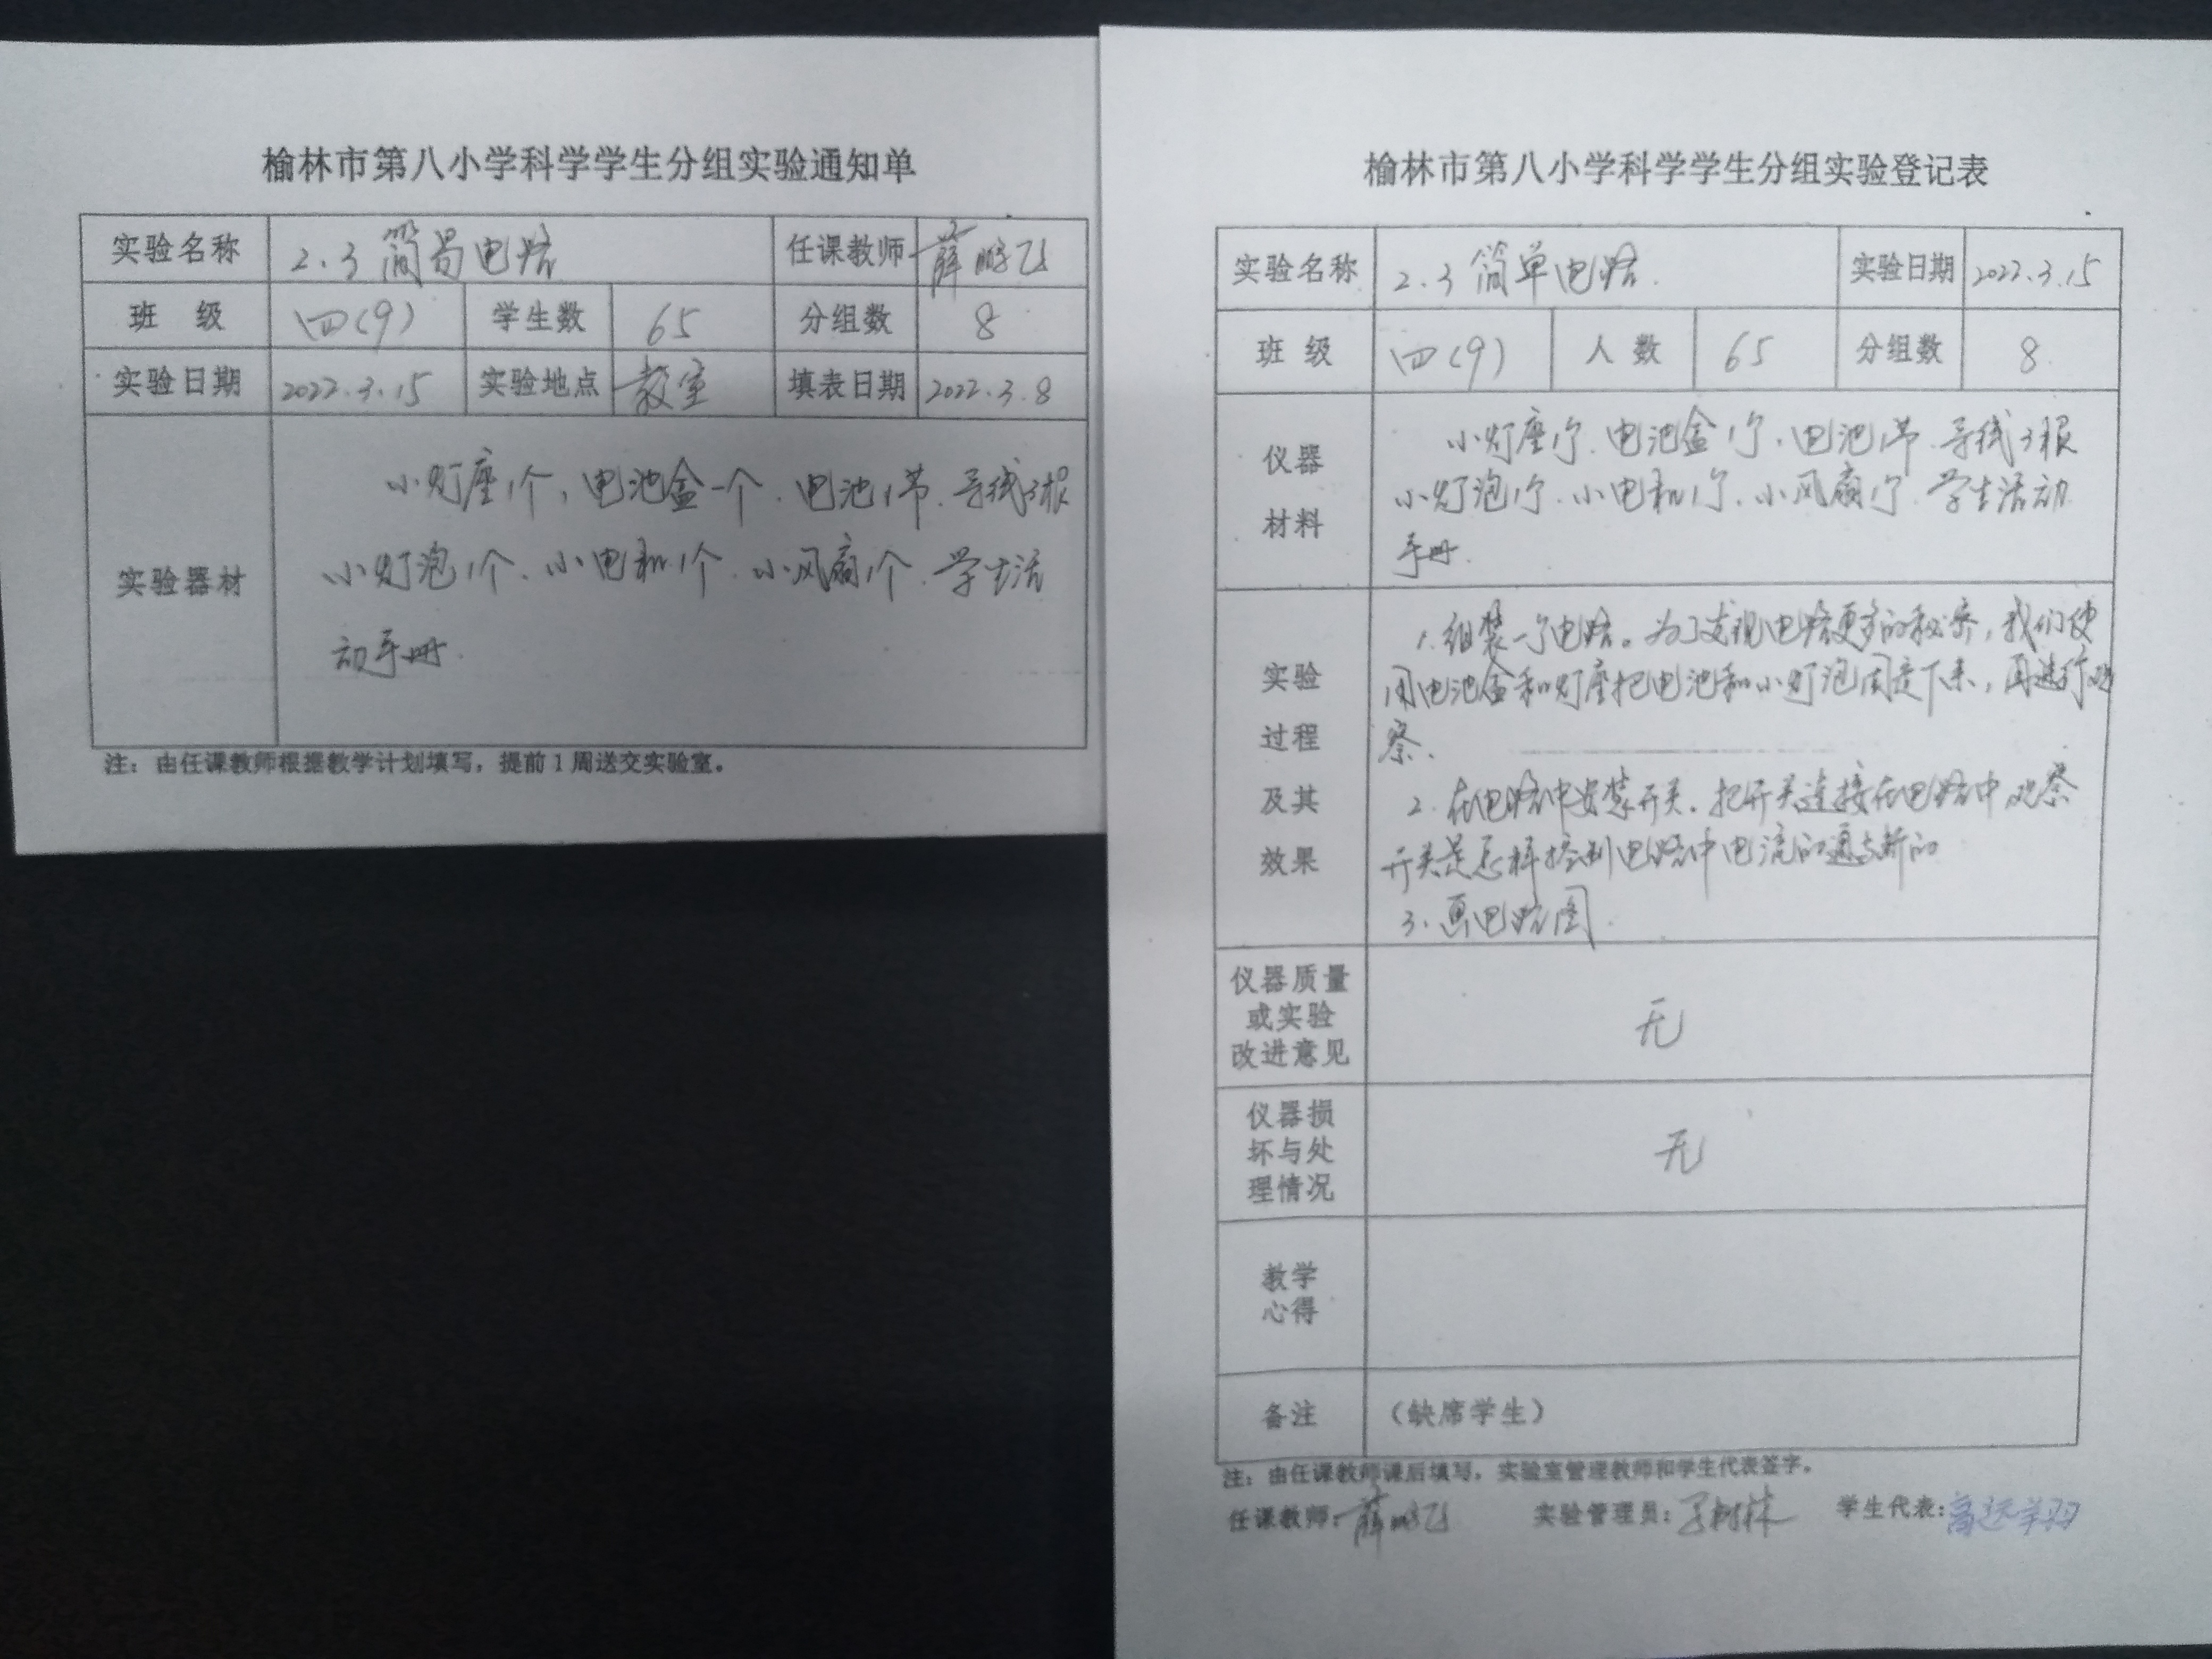 榆林市第八小学科学学生分组实验通知单
实验名称 2.3 简易电路 任课教师 薛鹏飞
班 级 四(9) 学生数 65 分组数 8
实验日期 2022.3.15 实验地点 教室 填表日期 2022.3.8
实验器材
小灯座1个、电池盒一个、电池1节、导线3根
小灯泡1个、小电机1个、小风扇1个、学生活
动手册.
注：由任课教师根据教学计划填写，提前1周送交实验室。
榆林市第八小学科学学生分组实验登记表
实验名称 2.3 简单电路. 实验日期 2022.3.15
班 级 四(9) 人 数 65 分组数 8
仪器
材料
小灯座1个、电池盒1个、电池1节、导线3根
小灯泡1个、小电机1个、小风扇1个、学生活动
手册.
实验
过程
及其
效果
1.组装一个电路。为了发现电路更多的秘密，我们使
用电池盒和灯座把电池和小灯泡固定下来，再进行观
察.
2.在电路中安装开关.把开关连接在电路中观察
开关是怎样控制电路中电流的通与断的
3.画电路图.
仪器质量
或实验
改进意见
无
仪器损
坏与处
理情况
无
教学
心得
备注 （缺席学生）
注：由任课教师课后填写，实验室管理教师和学生代表签字。
任课教师：薛鹏飞 实验管理员： 学生代表：